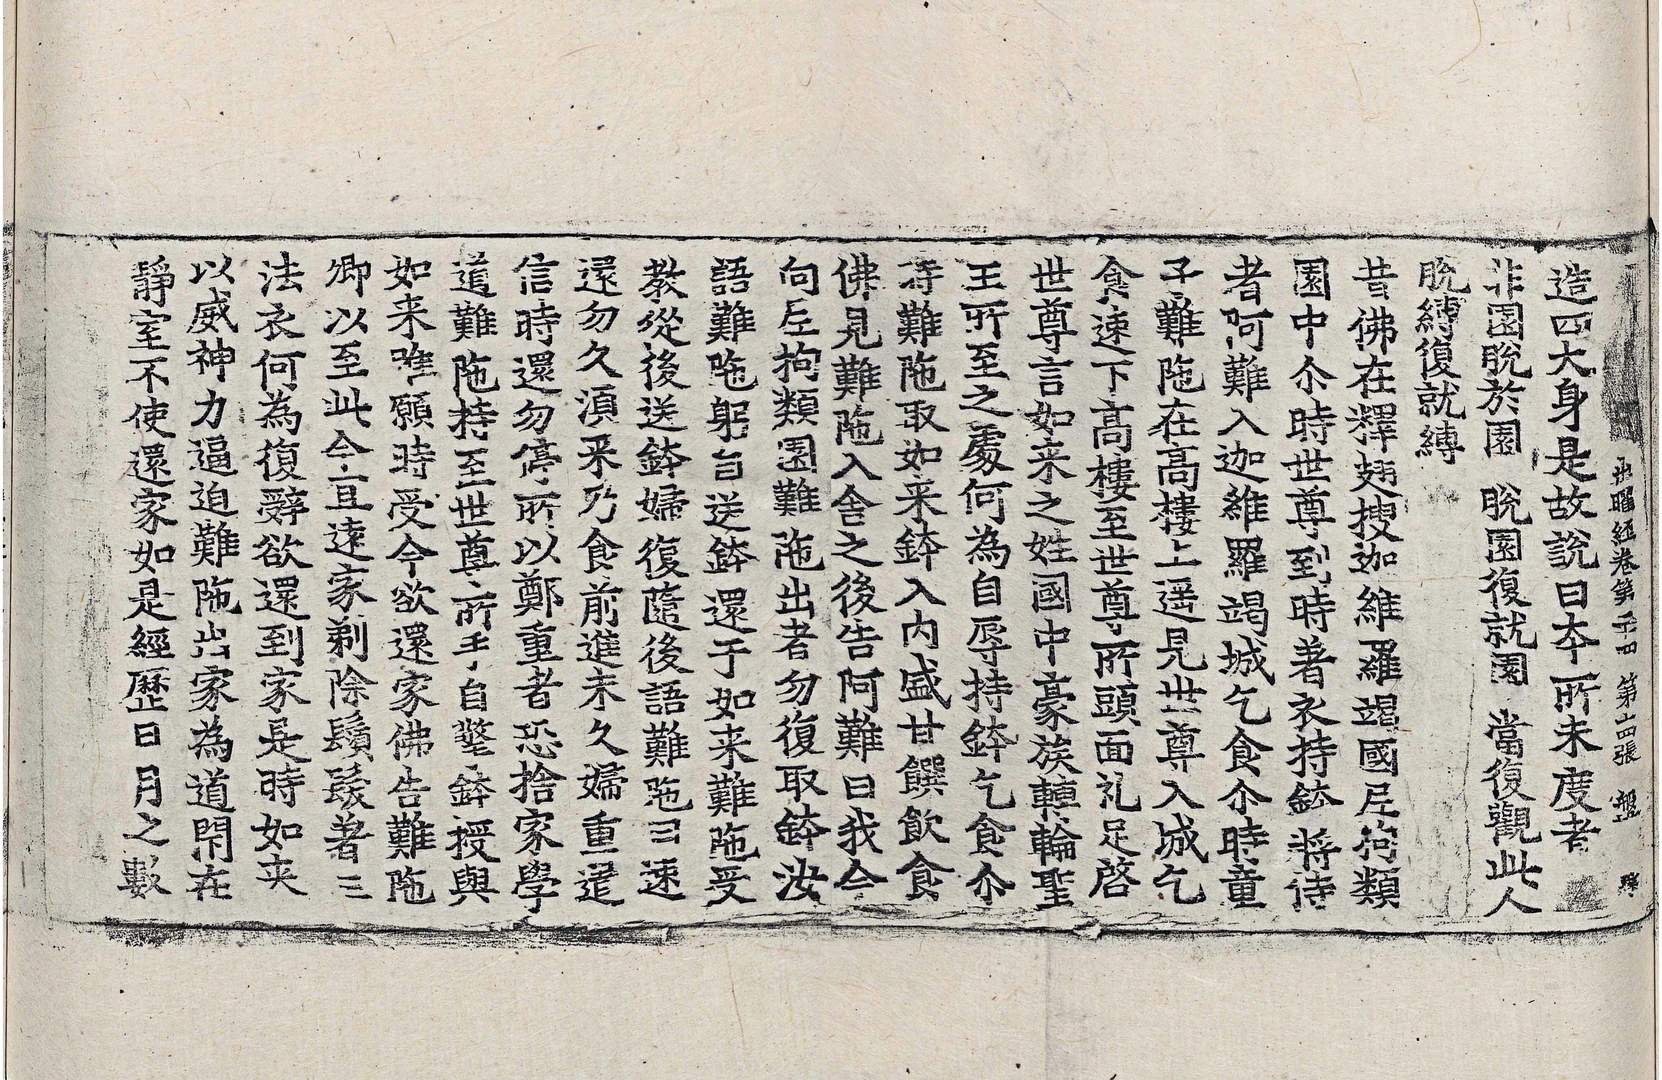 出曜經卷第二十四 第十四張 盤
造四大身是故說曰本所未度者
非園脫於園 脫園復就園 當復觀此人
脫縛復就縛
昔佛在釋翅搜迦維羅竭國尼拘類
園中尒時世尊到時著衣持鉢將侍
者阿難入迦維羅竭城乞食尒時童
子難陁在高樓上遥見世尊入城乞
食速下高樓至世尊所頭面礼足啓
世尊言如来之姓國中豪族轉輪聖
王所至之處何為自辱持鉢乞食尒
時難陁取如来鉢入內盛甘饌飲食
佛見難陁入舍之後告阿難曰我今
向尼拘類園難陁出者勿復取鉢汝
語難陁躬自送鉢還于如来難陁受
教從後送鉢婦復隨後語難陁曰速
還勿久湏来乃食前進未久婦重遣
信時還勿停所以鄭重者恐捨家學
道難陁持至世尊所手自擎鉢授與
如来唯願時受今欲還家佛告難陁
卿以至此今宜遠家剃除鬚髮著三
法衣何為復辭欲還到家是時如来
以威神力逼迫難陁出家為道閇在
靜室不使還家如是經歷日月之數